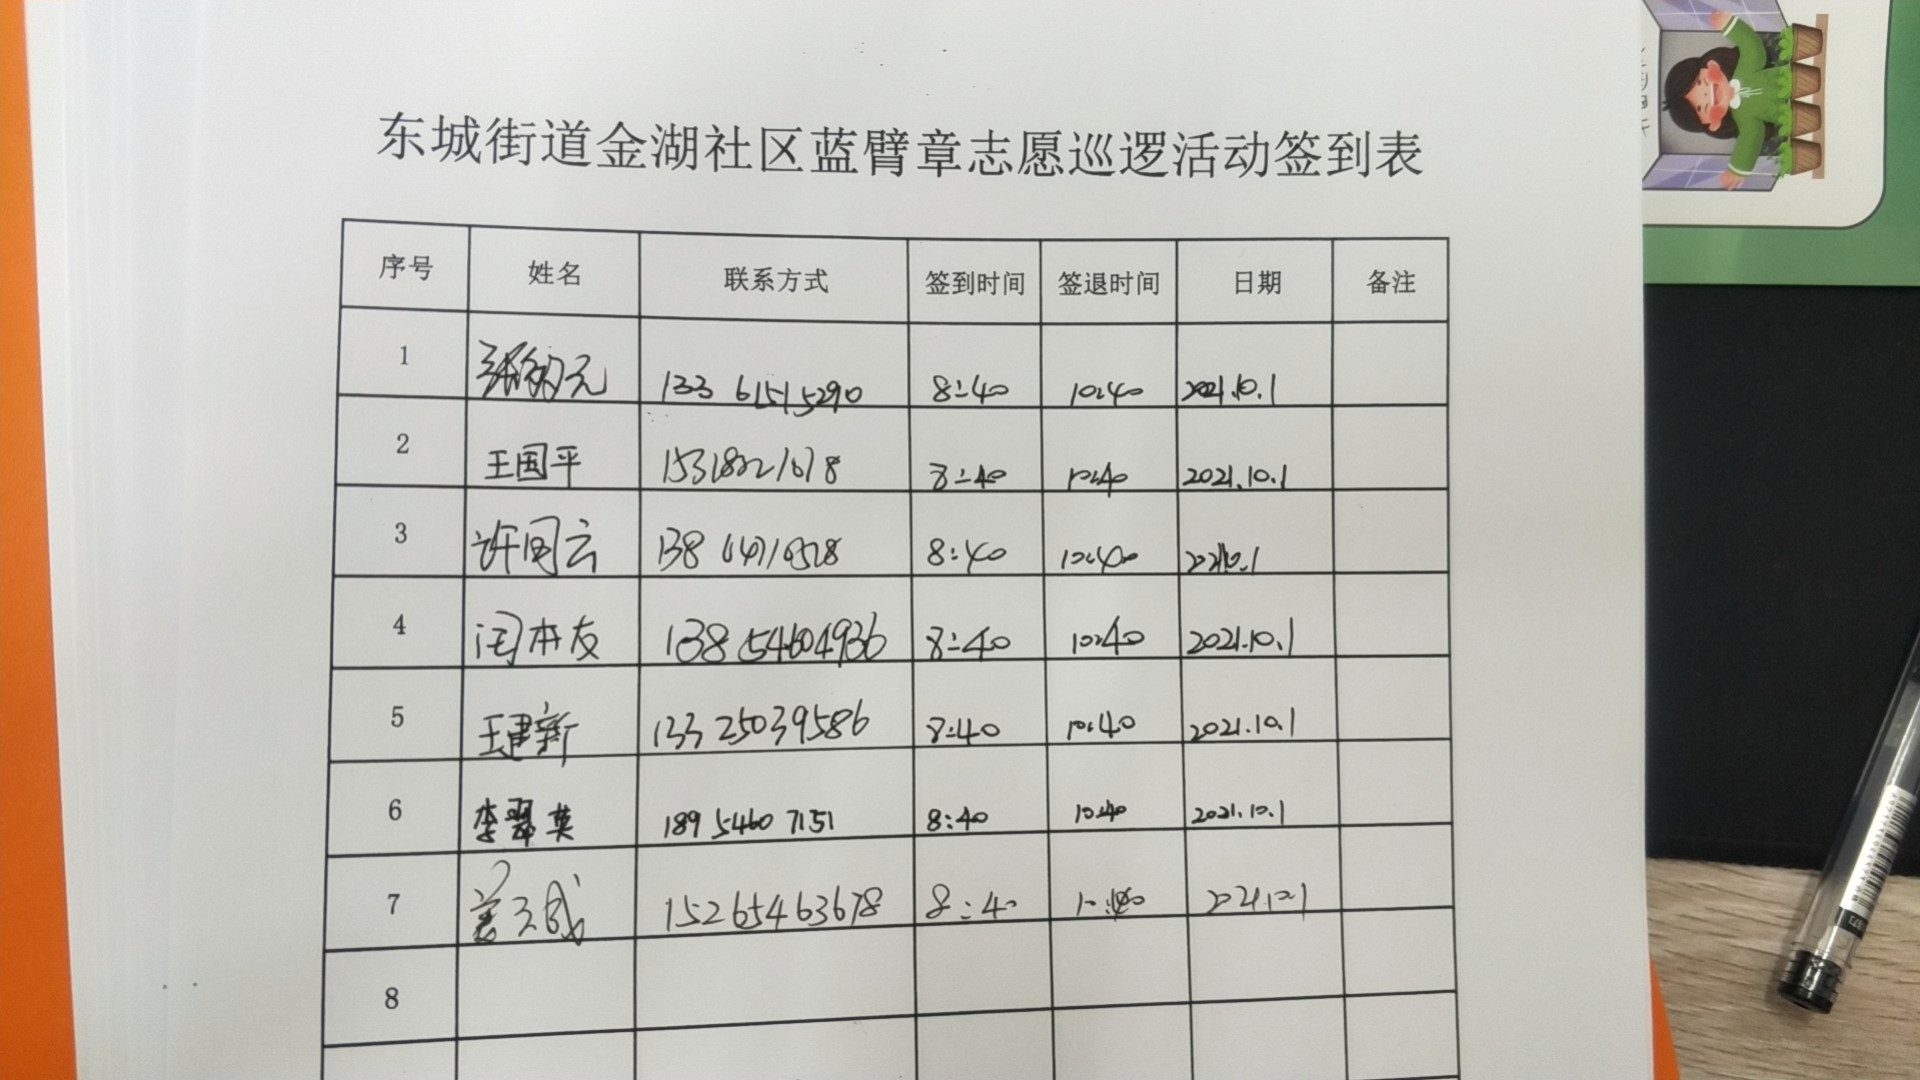 东城街道金湖社区蓝臂章志愿巡逻活动签到表
序号 姓名 联系方式 签到时间 签退时间 日期 备注
1 133 61515290 8:40 10:40 2021.10.1
2 王国平 15318221618 8:40 10:40 2021.10.1
3 许同云 138 8:40 10:40 2021.10.1
4 闫本友 138 54604936 8:40 10:40 2021.10.1
5 王建新 133 25039586 8:40 10:40 2021.10.1
6 李翠英 189 5460 7151 8:40 10:40 2021.10.1
7 15265463678 8:40 10:40 2021.10.1
8